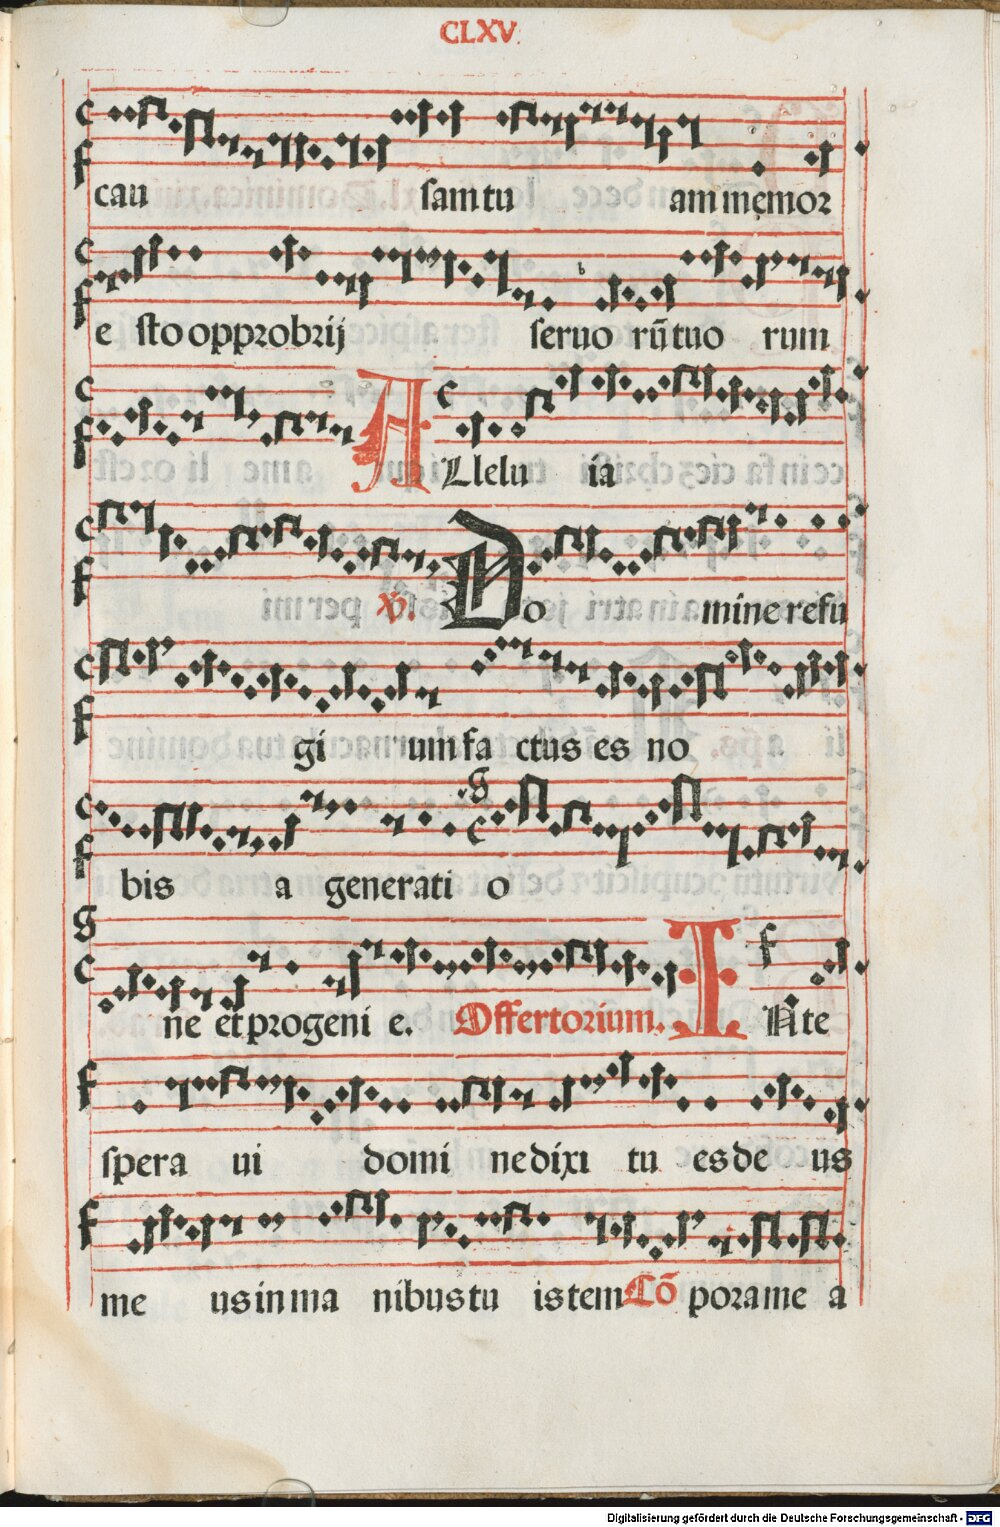 CLXV.
cau sam tu am memor
e sto opprobrij seruo rũ tuo rum
A Llelu ia
℣. Do mine refu
gi um fa ctus es no
bis a generati o
ne et progeni e. Offertorium. I Nte
spera ui domi ne dixi tu es de us
me us in ma nibus tu is tem Cõ pora me a
Digitalisierung gefördert durch die Deutsche Forschungsgemeinschaft - DFG